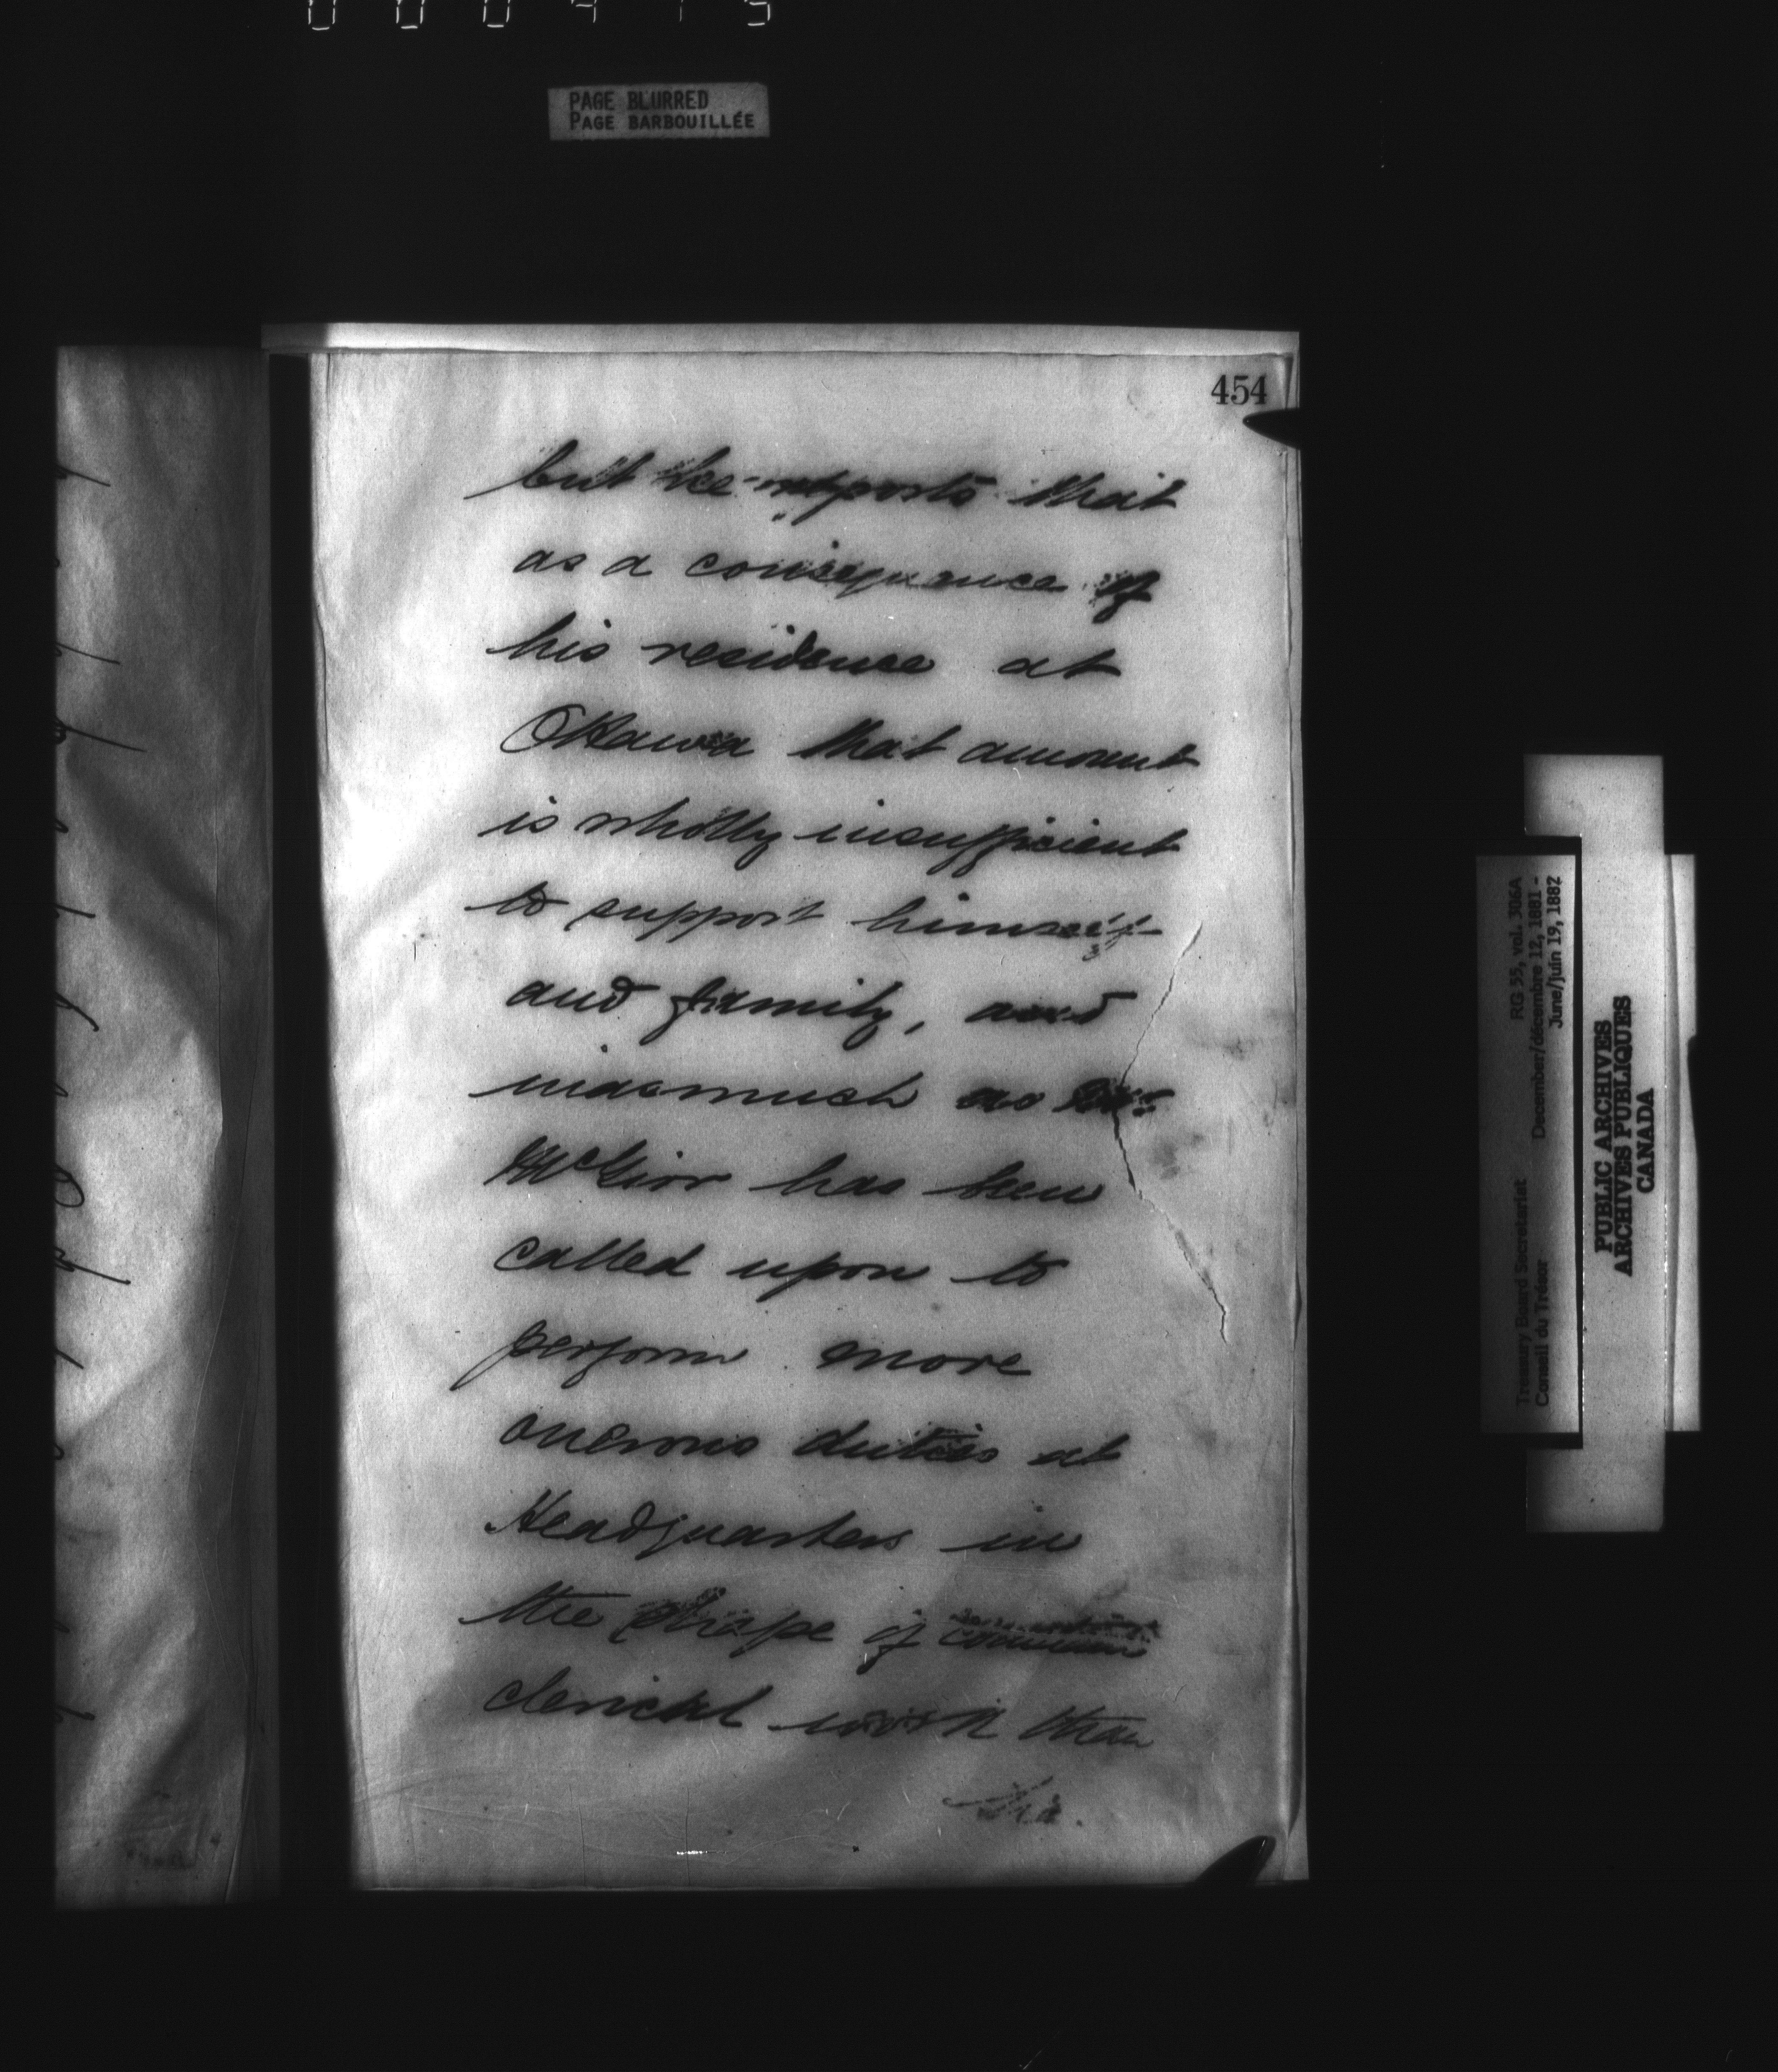 PAGE BLURRED
PAGE BARBOUILLÉE
454
but he reports that
as a consequence of
his residence at
Ottawa that amount
is wholly insufficient
to support himself
and family, and
inasmuch as
McGirr has been
called upon to
perform more
onerous duties at
Headquarters in
the shape of
clerical work than
Treasury Board Secretariat
Conseil du Trésor
RG 55, vol. 306A
December/décembre 12, 1881 -
June/juin 19, 1882
PUBLIC ARCHIVES
ARCHIVES PUBLIQUES
CANADA